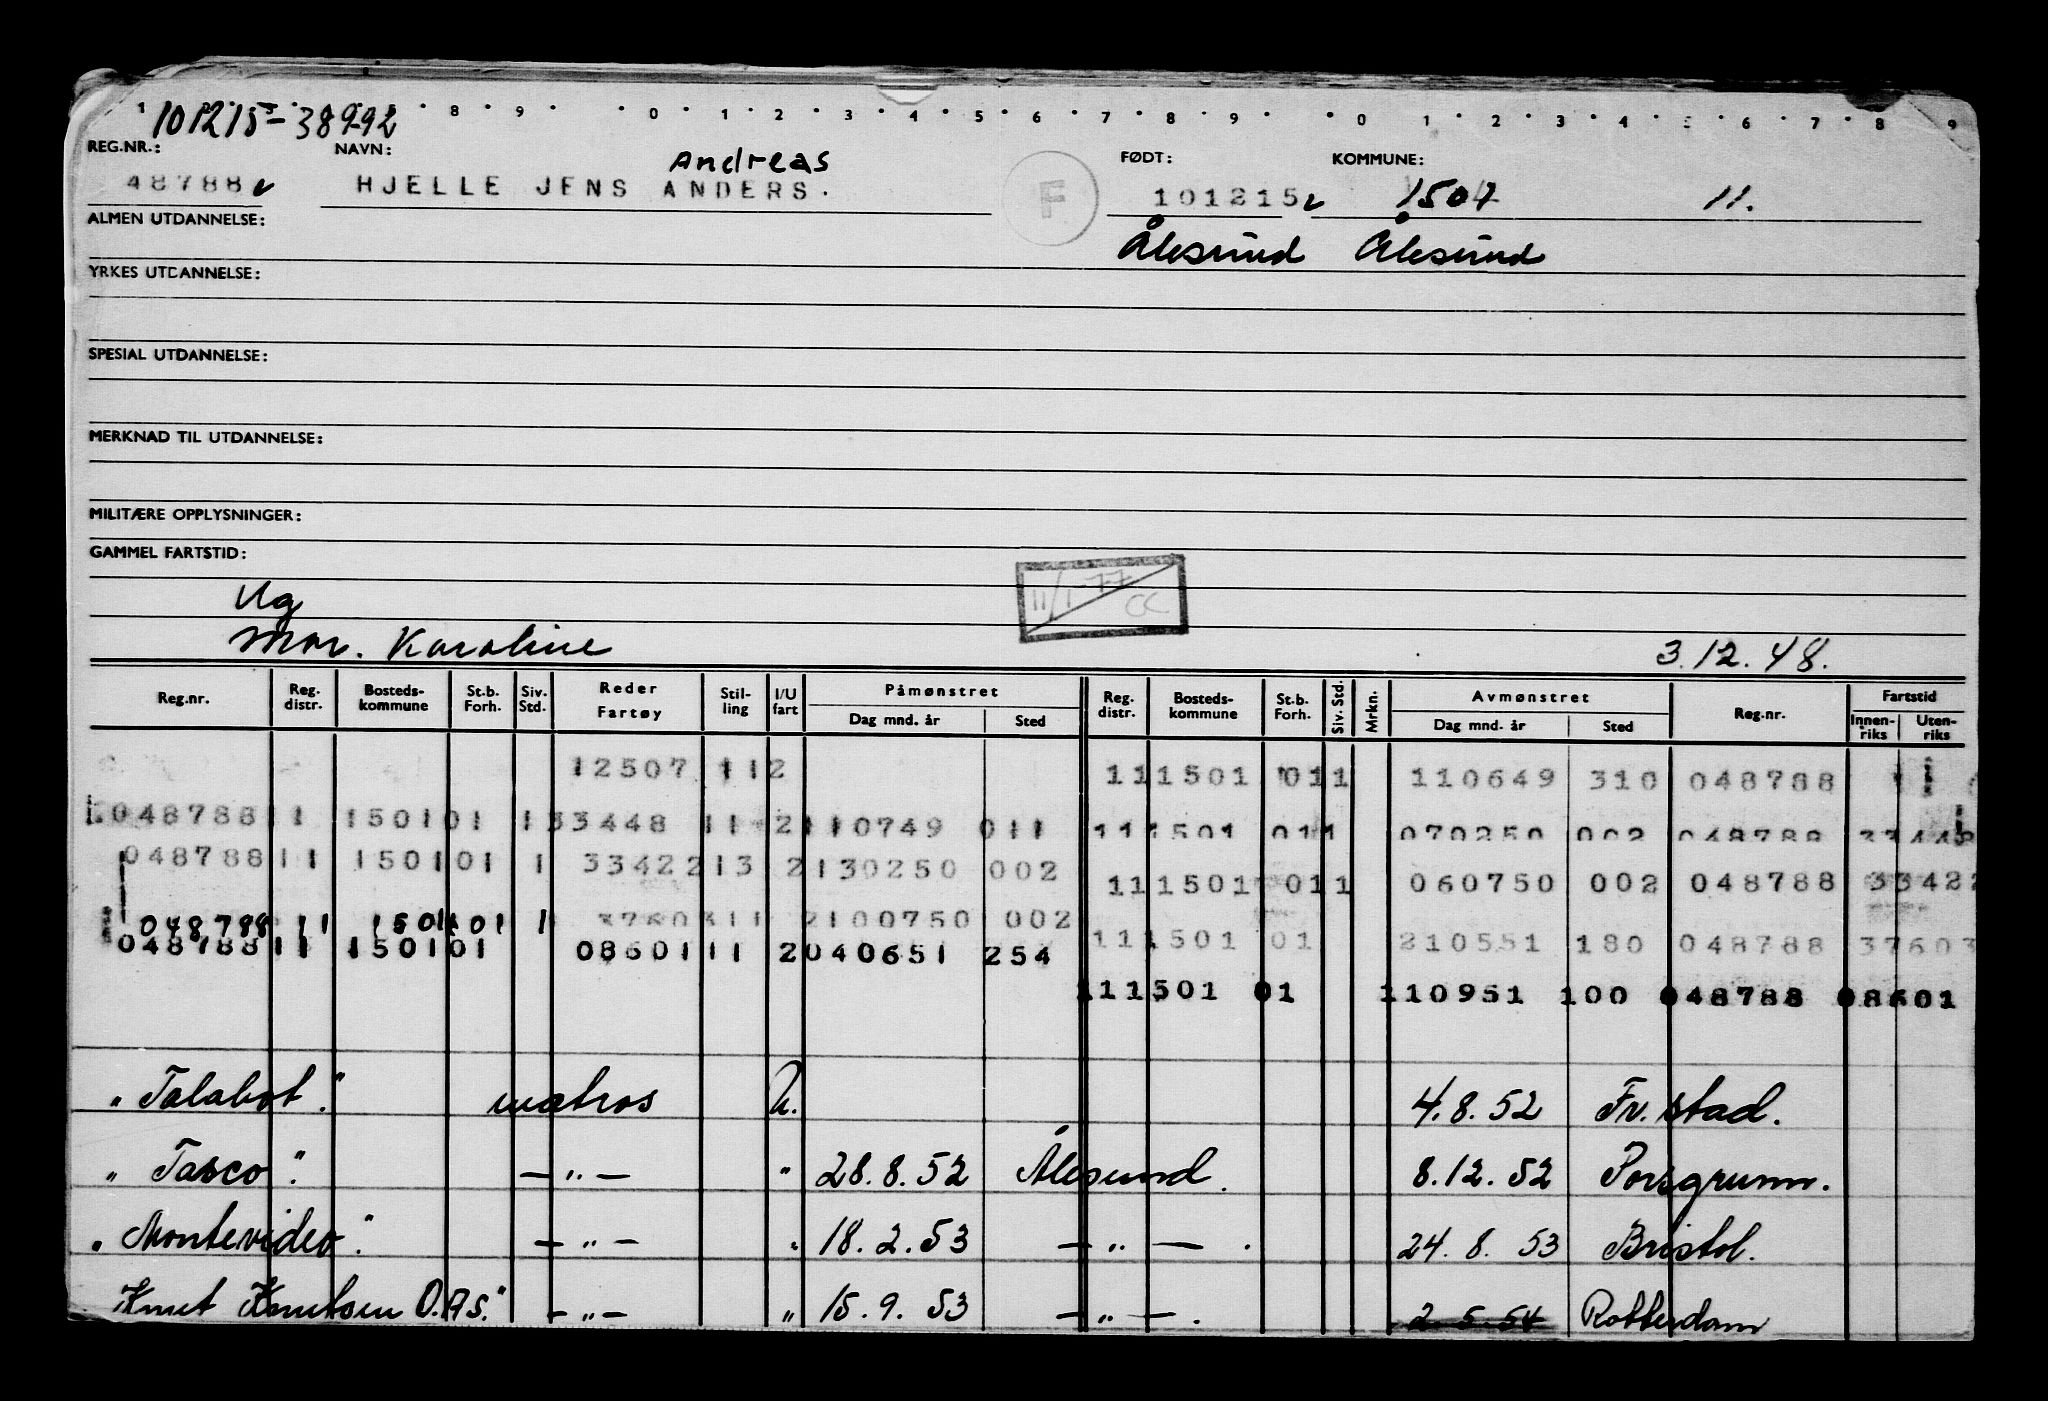 1 8 9 0 1 2 3 4 5 6 7 8 9 0 1 2 3 4 5 6 7 8 9
101215-38992
REG.NR.: NAVN: FØDT: KOMMUNE:
Andreas
48788 HJELLE JENS ANDERS. F 101215 1504 11.
ALMEN UTDANNELSE: Ålesund Ålesund
YRKES UTDANNELSE:
SPESIAL UTDANNELSE:
MERKNAD TIL UTDANNELSE:
MILITÆRE OPPLYSNINGER:
GAMMEL FARTSTID:
11/1-77 CC
Ug
Mor. Karoline 3.12.48.
Reg.nr. Reg. distr. Bosteds-kommune St.b. Forh. Siv. Std. Reder Fartøy Stil-ling I/U fart Påmønstret Dag mnd. år Sted Reg. distr. Bosteds-kommune St.b. Forh. Siv. Std. Mrkn. Avmønstret Dag mnd. år Sted Reg.nr. Fartstid Innen-riks Uten-riks
12507 11 2 11 1501 01 1 110649 310 048788
048788 11 1501 01 1 33448 11 2 110749 011 11 1501 01 1 070250 002 048788 33448
048788 11 1501 01 1 33422 13 2 130250 002 11 1501 01 1 060750 002 048788 33422
048788 11 1501 01 1 37603 11 2 100750 002 11 1501 01 210551 180 048788 37603
048788 11 1501 01 08601 11 2 040651 254
11 1501 01 110951 100 048788 08601
"Talabot." matros U. 4.8.52 Fr.stad.
"Tasco". — " — " 28.8.52 Ålesund. 8.12.52 Porsgrunn.
"Montevideo". — " — " 18.2.53 — " — . 24.8.53 Bristol.
Knut Knutsen O.A.S." — " — " 15.9.53 — " — . 2.5.54 Rotterdam